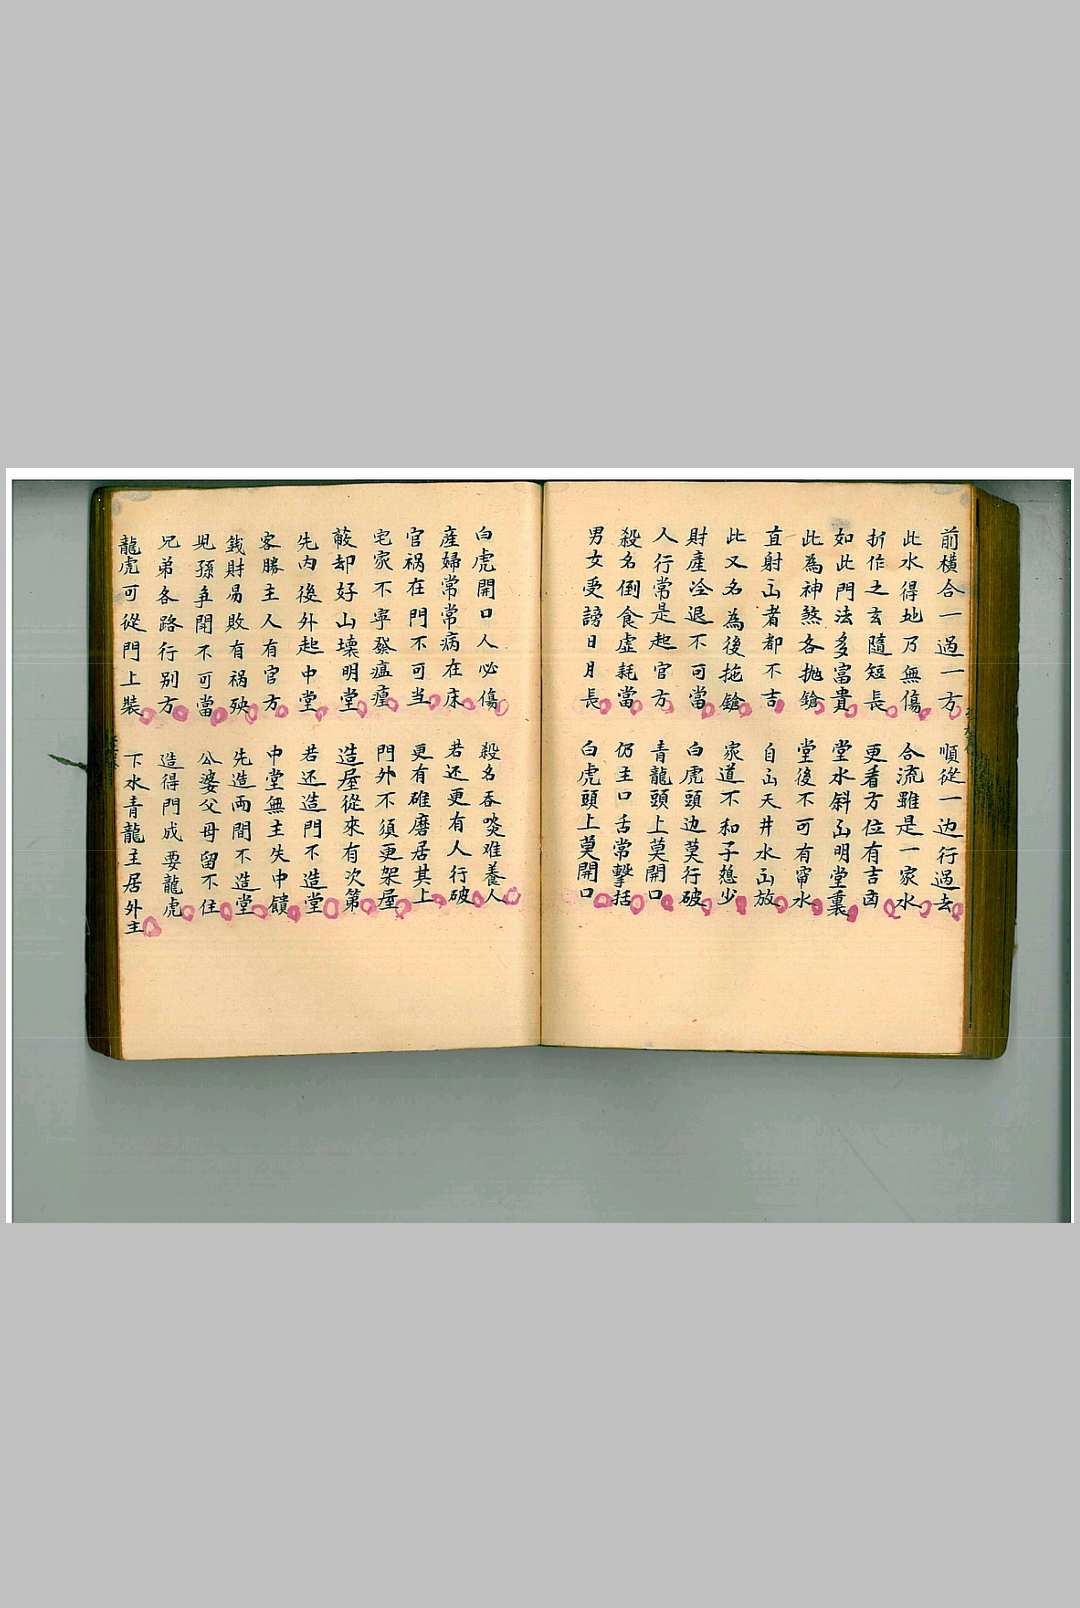 前橫合一過一方 順從一边行過去
此水得地乃無傷 合流雖是一家水
折作之玄隨短長 更看方位有吉凶
如此門法多富貴 堂水斜出明堂裏
此為神煞各拋鎗 堂後不可有甯水
直射出者都不吉 自出天井水出放
此又名為後拖鎗 家道不和子媳少
財產冷退不可當 白虎頭边莫行破
人行常是起官方 青龍頭上莫開口
殺名倒食虛耗當 仍主口舌常擊括
男女受謗日月長 白虎頭上莫開口
白虎開口人必傷 殺名吞啖难養人
產婦常常病在床 若还更有人行破
官祸在門不可当 更有碓磨居其上
宅家不寧發瘟㾮 門外不須更架屋
蔽却好山壞明堂 造屋從來有次第
先內後外起中堂 若还造門不造堂
客勝主人有官方 中堂無主失中饋
錢財易敗有祸殃 先造兩間不造堂
児孫爭鬧不可當 公婆父母留不住
兄弟各路行別方 造得門成要龍虎
龍虎可從門上裝 下水青龍主居外主